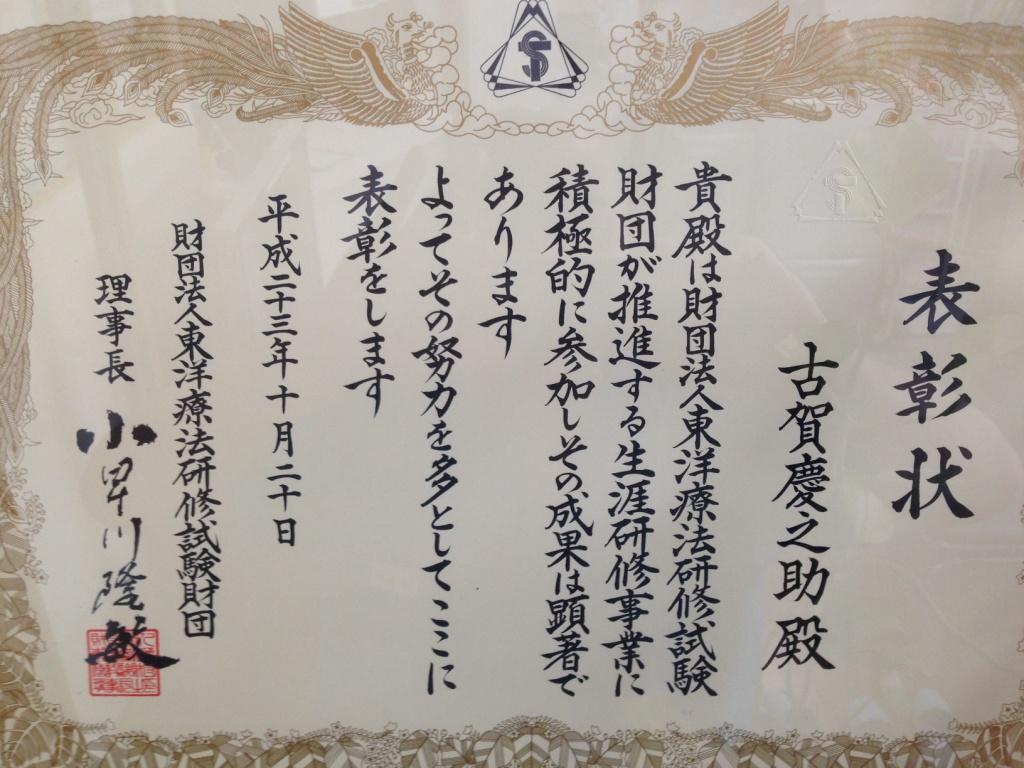 表彰状
古賀慶之助殿
貴殿は財団法人東洋療法研修試験
財団が推進する生涯研修事業に
積極的に参加しその成果は顕著で
あります
よってその努力を多としてここに
表彰をします
平成二十三年十月二十日
財団法人東洋療法研修試験財団
理事長 小早川隆敏